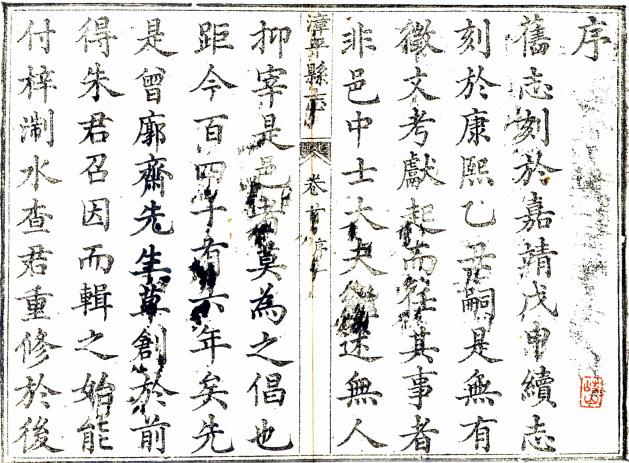 序
舊志刻於嘉靖戊申續志
刻於康熙乙丑嗣是無有
徵文考獻起而任其事者
非邑中士大夫述無人
漳平縣志 卷首 序
抑宰是邑者莫為之倡也
距今百四十有六年矣先
是曾廓齋先生草創於前
得朱君召因而輯之始能
付梓淛水查君重修於後